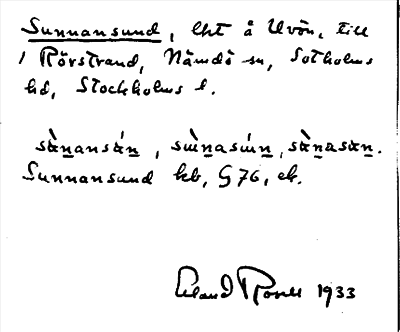 Sunnansund, lht å Uvön, till
1 Rörstrand, Nämdö sn, Sotholms
hd, Stockholms l.
sùnansún, sùnasún, sùnasùn.
Sunnansund kb, G 76, ek.
Erland Rosell 1933